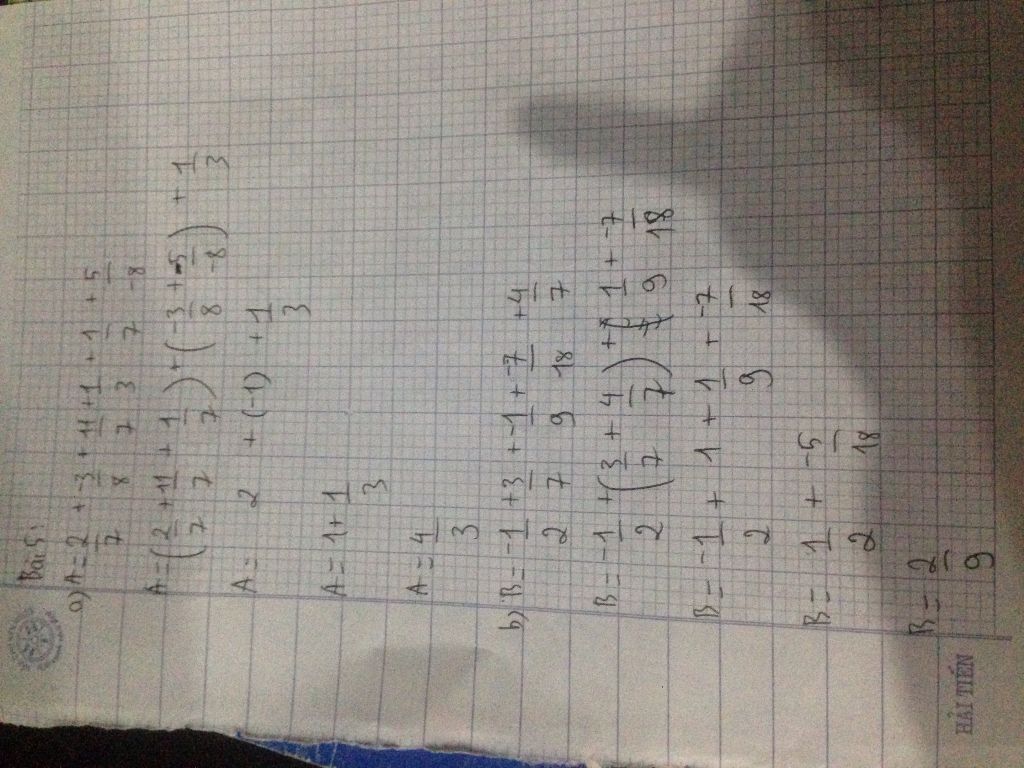 Bài 5:
a) A = 2/7 + -3/8 + 11/7 + 1/3 + 1/7 + 5/-8
A = (2/7 + 11/7 + 1/7) + (-3/8 + -5/-8) + 1/3
A = 2 + (-1) + 1/3
A = 1 + 1/3
A = 4/3
b) B = -1/2 + 3/7 + -1/9 + -7/18 + 4/7
B = -1/2 + (3/7 + 4/7) + 1/9 + -7/18
B = -1/2 + 1 + 1/9 + -7/18
B = 1/2 + -5/18
B = 2/9
HẢI TIẾN